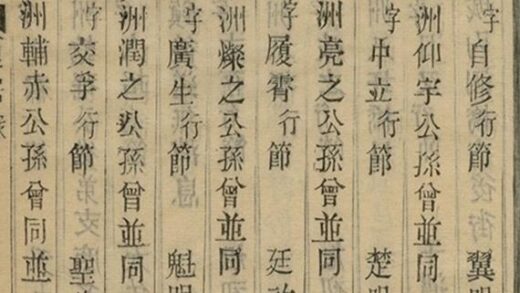 字自修行節 翼明
洲仰宇公孫曾並同
字中立行節 楚明
洲亮之公孫曾並同
字履霄行節 廷
洲燦之公孫曾並同
字廣生行節 魁明
洲潤之公孫曾並同
字交孚行節 聖
洲輔赤公孫曾同並